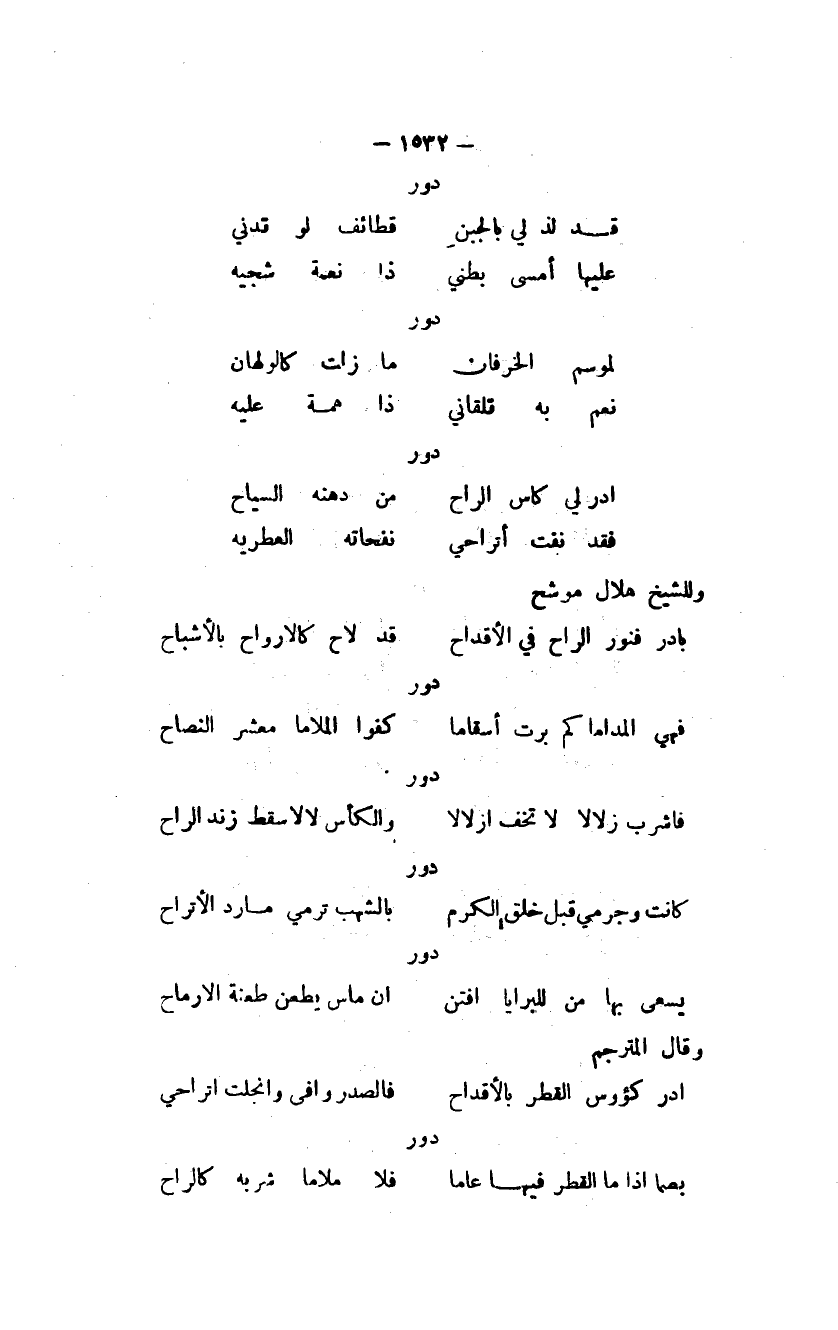 — ١٥٣٢ —
دور
قـــد لذ لي بالجبن قطائف لو قدني
عليها أمسى بطني ذا نعمة شجيه
دور
لموسم الخرفان ما زلت كالولهان
نعم به تلقاني ذا همــة عليه
دور
ادر لي كاس الراح من دهنه السياح
فقد نفت أتراحي نفحاته العطريه
وللشيخ هلال موشح
بادر فنور الراح في الأقداح قد لاح كالارواح بالأشباح
دور
فهي المداما كم برت أسقاما كفوا الملاما معشر النصاح
دور
فاشرب زلالا لا تخف ازلالا والكأس لالا سقط زند الراح
دور
كانت وجرمي قبل خلق الكرم بالشهب ترمي مــارد الأتراح
دور
يسعى بها من للبرايا افتن ان ماس يطعن طعنة الارماح
وقال المترجم
ادر كؤوس القطر بالأقداح فالصدر وافى وانجلت اتراحي
دور
بصما اذا ما القطر فيهــا عاما فلا ملاما شربه كالراح